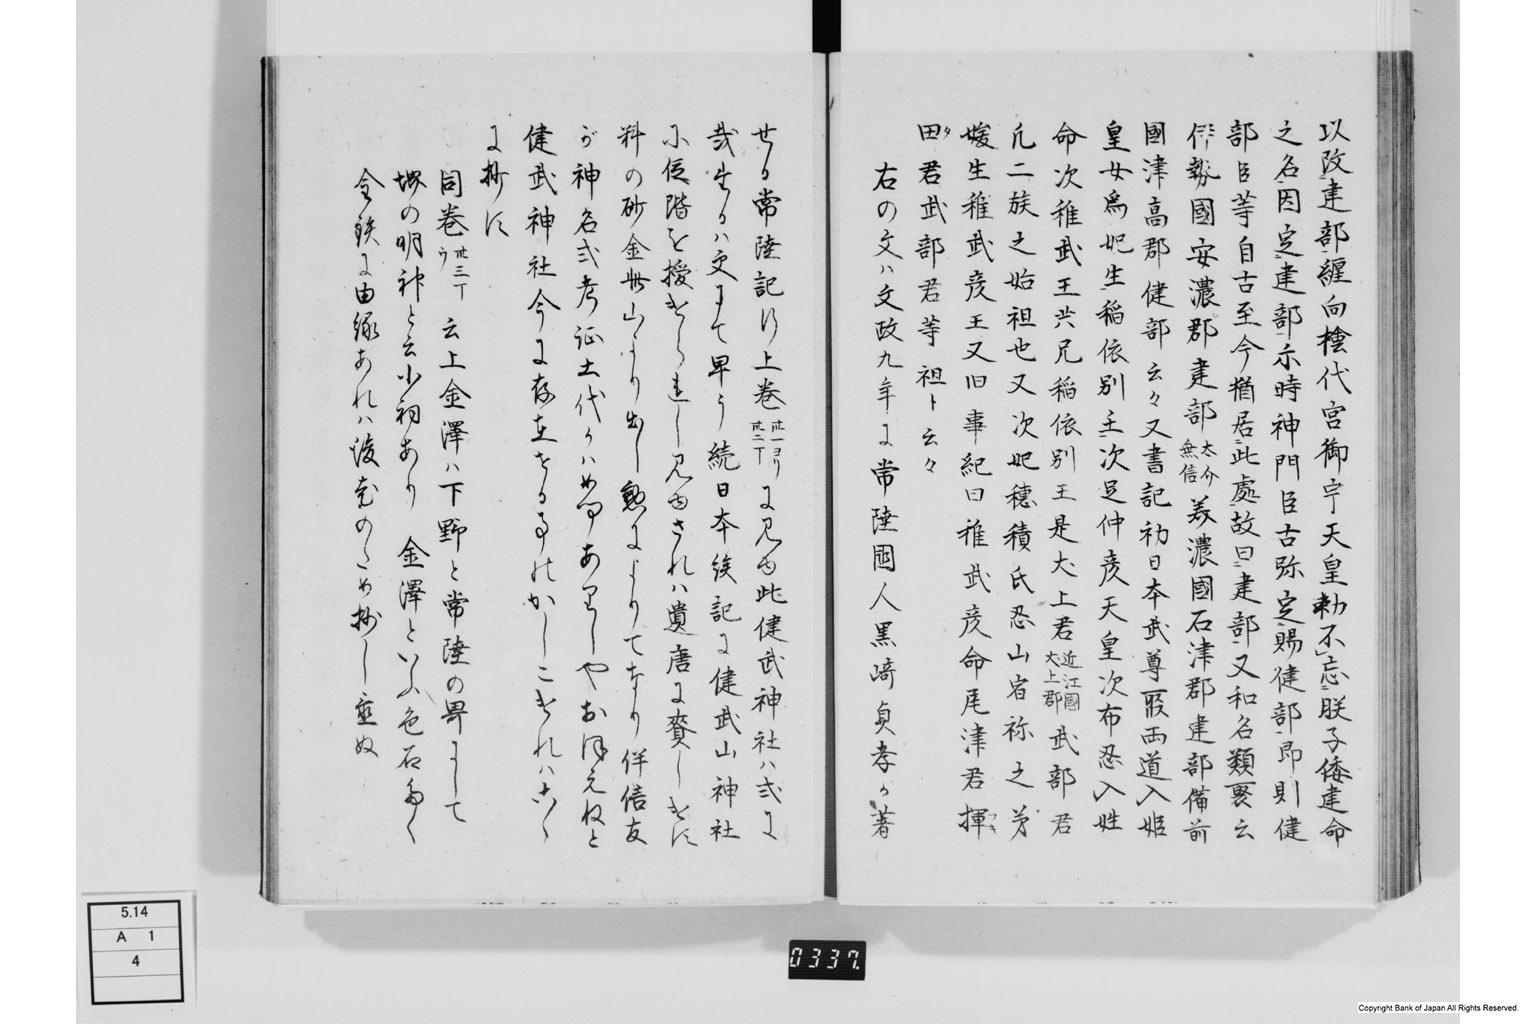 以改建部纏向檜代宮御宇天皇勅不忘朕子倭建命
之名因定建部尓時神門臣古弥定賜健部即則健
部臣等自古至今猶居此處故曰建部又和名類聚云
伊勢國安濃郡建部 美濃國石津郡建部備前
大介
無信
國津高郡健部云々又書記初日本武尊 両道入姫
皇女為妃生稲依別王次足仲彦天皇次布忍入姓
命次稚武王其兄稲依別王是犬上君 武部君
近江國
犬上郡
凡二族之始祖也又次妃穂積氏忍山宿祢之弟
媛生稚武彦王又旧事紀曰稚武彦命尾津君揮
田君武部君等祖ト云々
右の文ハ文政九年に常陸國人黒崎貞孝か著
せる常陸記行上巻 に見ゆ此健武神社ハ式に
廿一ヨリ
廿二丁
哉生るハ更にて早う続日本後記に健武山神社
に位階を授けられし見ゆされハ遣唐に賚しけに
料の砂金此山より出し勲によりてなり伴信友
が神名式考証土代にハめつあらしやおほえねと
健武神社今に存在せる事なかしこけれハこゝ
に抄に
同巻 云上金澤ハ下野と常陸の界にして
廿三丁
ウ
堺の明神と云小祠あり 金澤といふ色石多く
金鉄に由縁あれハ後光のため抄し無ぬ
0337.
5.14
A 1
4
Copyright Bank of Japan All Rights Reserved.